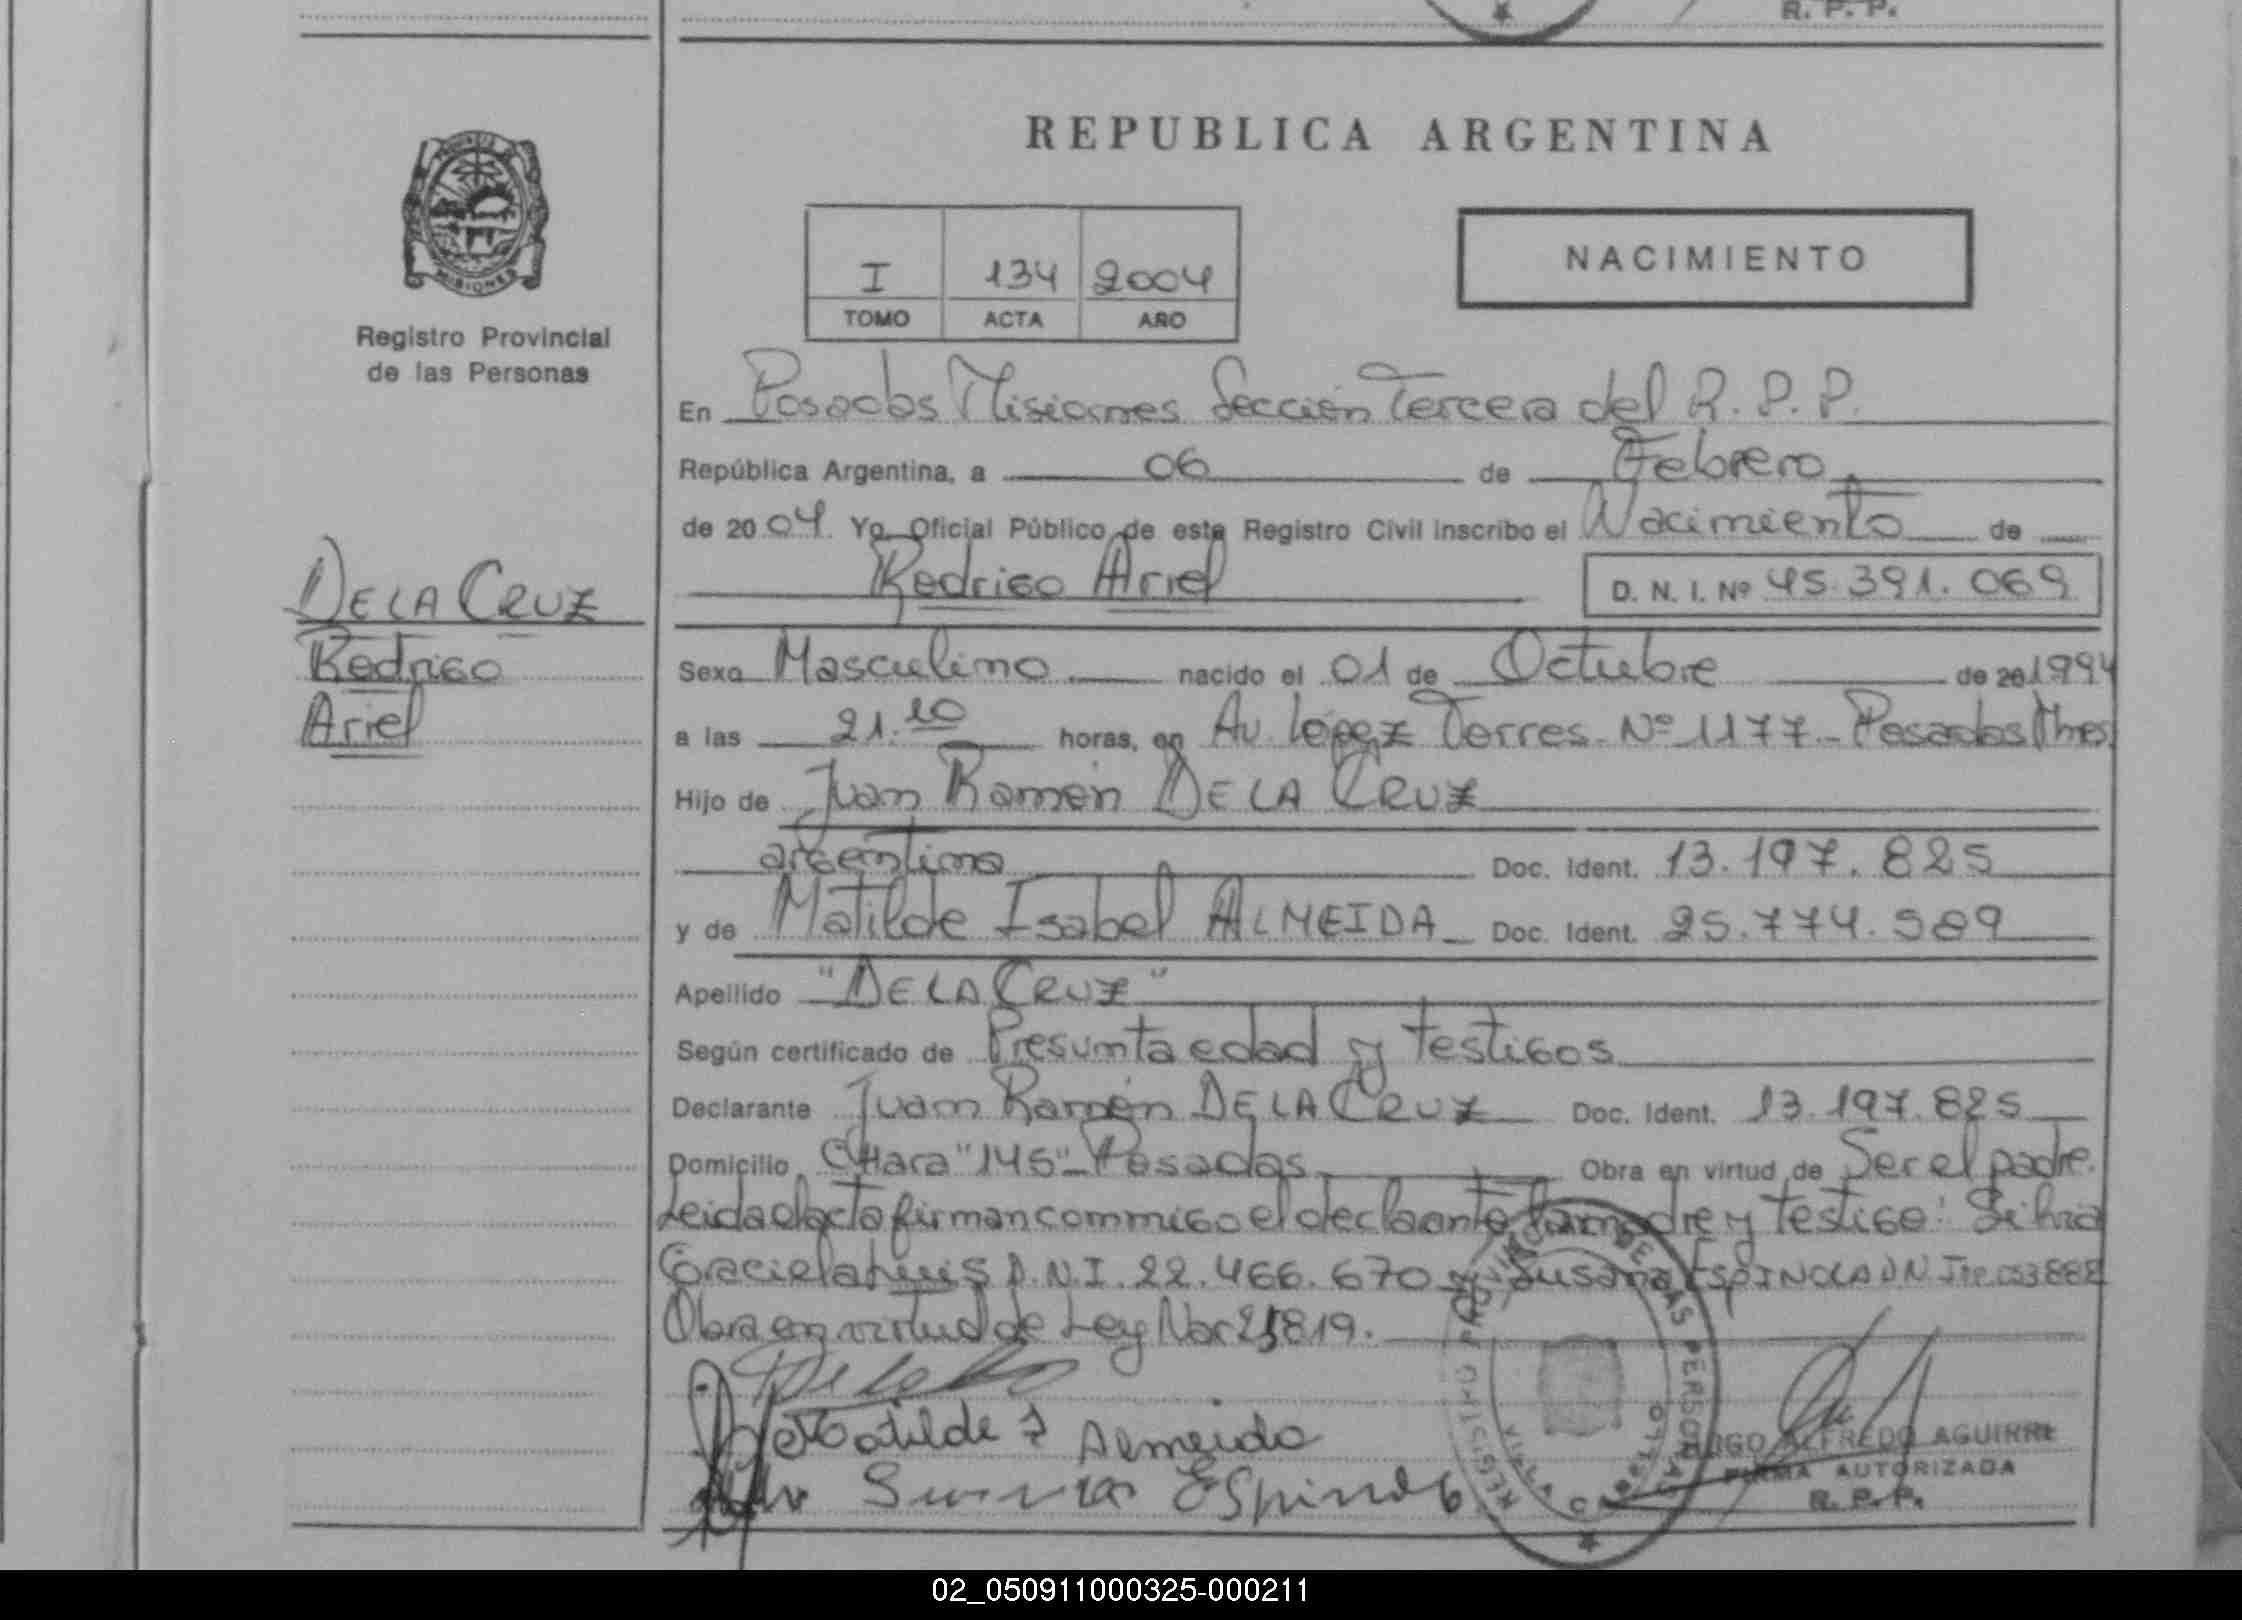 R. P. P.
REPUBLICA ARGENTINA
MISIONES
Registro Provincial
de las Personas
I 134 2004
TOMO ACTA AÑO
NACIMIENTO
En Posadas Misiones Sección Tercera del R. P. P.
República Argentina, a 06 de Febrero
de 2004. Yo Oficial Público de este Registro Civil inscribo el Nacimiento de
Rodrigo Ariel D. N. I. Nº 45.391.069
DE LA CRUZ
Rodrigo
Ariel
Sexo Masculino nacido el 01 de Octubre de 20 1994
a las 21.10 horas, en Av. López Torres Nº 1177 - Posadas Mnes
Hijo de Juan Ramón DE LA CRUZ
argentino Doc. Ident. 13.197.825
y de Matilde Isabel ALMEIDA Doc. Ident. 25.774.589
Apellido "DE LA CRUZ"
Según certificado de Presunta edad y testigos
Declarante Juan Ramón DE LA CRUZ Doc. Ident. 13.197.825
Domicilio CHara "145" Posadas Obra en virtud de Ser el padre.
Leida el acta firman conmigo el declarante la madre y testigo: Silvia
Graciela D.N.I. 22.466.670 y Susana ESPINOLA D.N.I
Obra en virtud de Ley Nor 25819.
Matilde I Almeida
Susana Espinola
HUGO ALFREDO AGUIRRE
FIRMA AUTORIZADA
R. P. P.
02_050911000325-000211